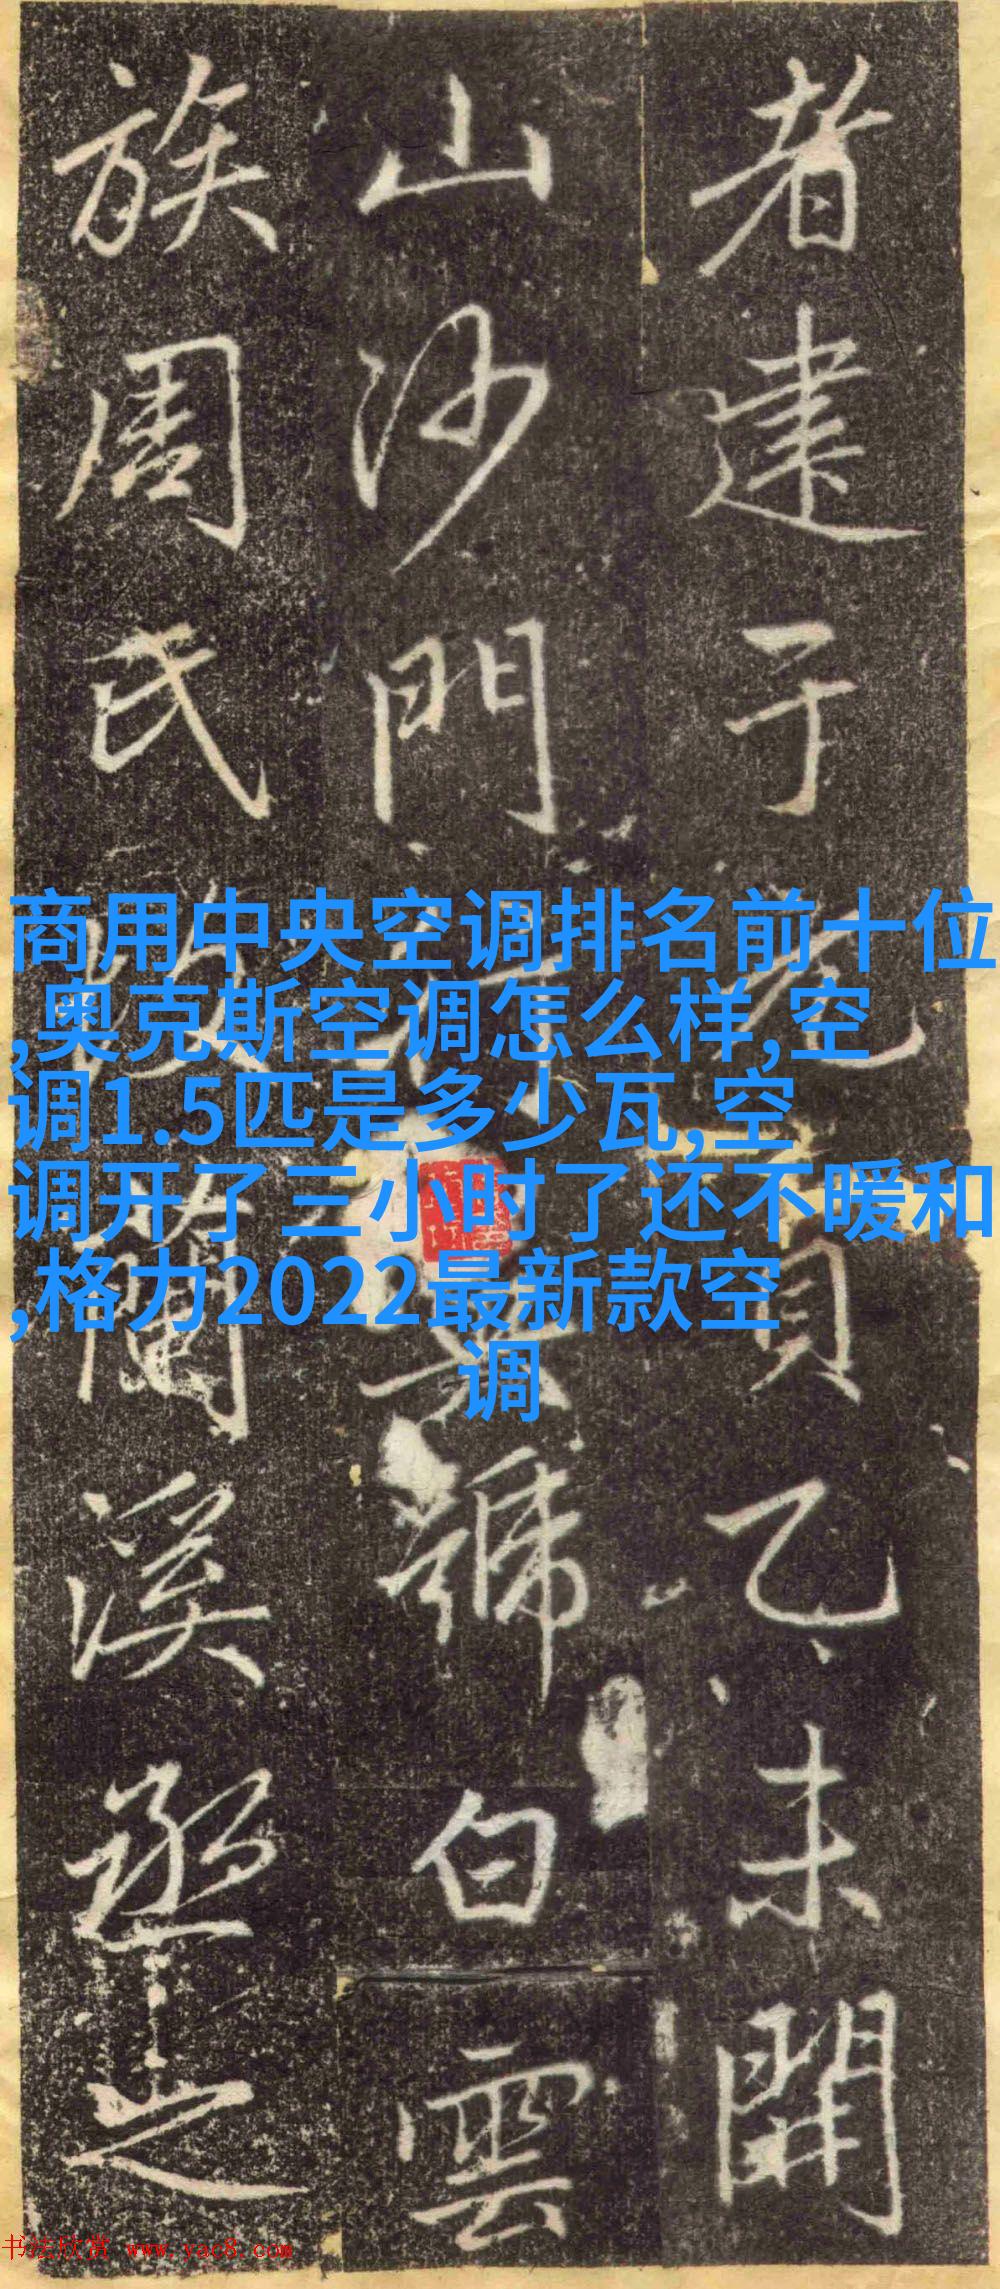 者建于元貞乙未開
山沙門號白雲
族周氏故蘭溪丞之
商用中央空调排名前十位
,奥克斯空调怎么样,空
调1.5匹是多少瓦,空
调开了三小时了还不暖和
,格力2022最新款空
调
书法欣赏 www.yac8.com